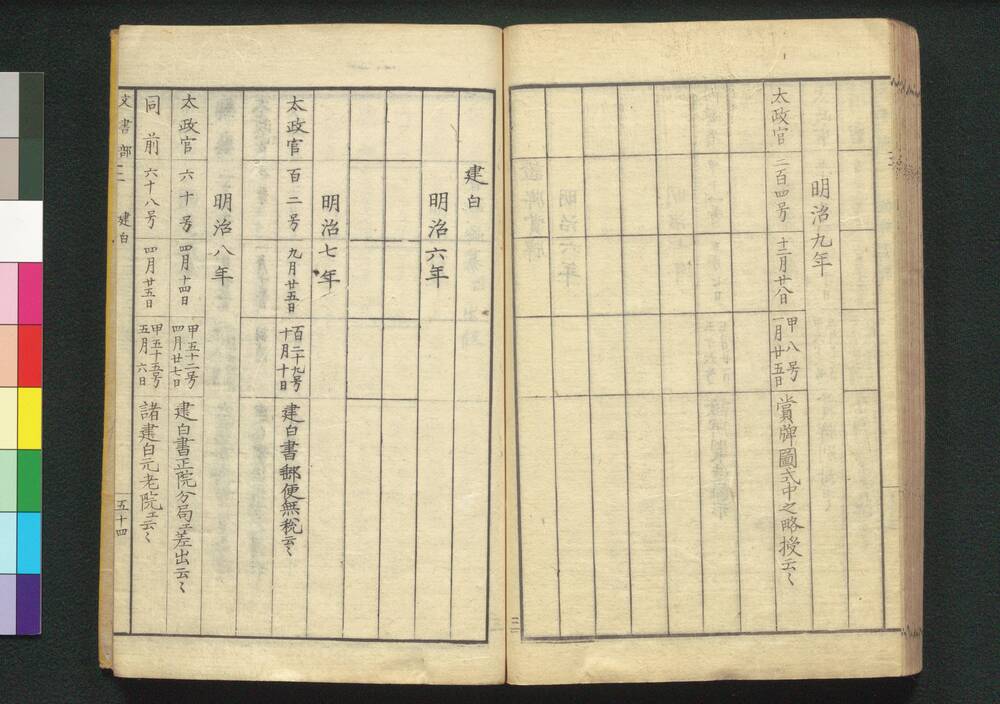 明治九年
太政官 二百四号 十二月廿八日 甲八号 一月廿五日 賞牌圖式中之略授云〻
建白
明治六年
明治七年
太政官 百二号 九月廿五日 百二十九号 十月十日 建白書郵便無税云〻
明治八年
太政官 六十号 四月十四日 甲五十二号 四月廿七日 建白書正院分局ヱ差出云〻
同前 六十八号 四月廿五日 甲五十五号 五月六日 諸建白元老院ヱ云〻
文書部二 建白 五十四